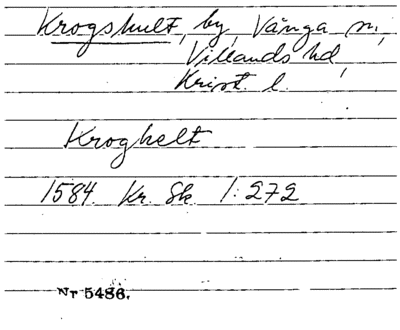 Krogshult, by, Vånga sn,
Villands hd,
Krist. l.
Kroghelt
1584. Kr. Sk. 1:272
Nr 5486.